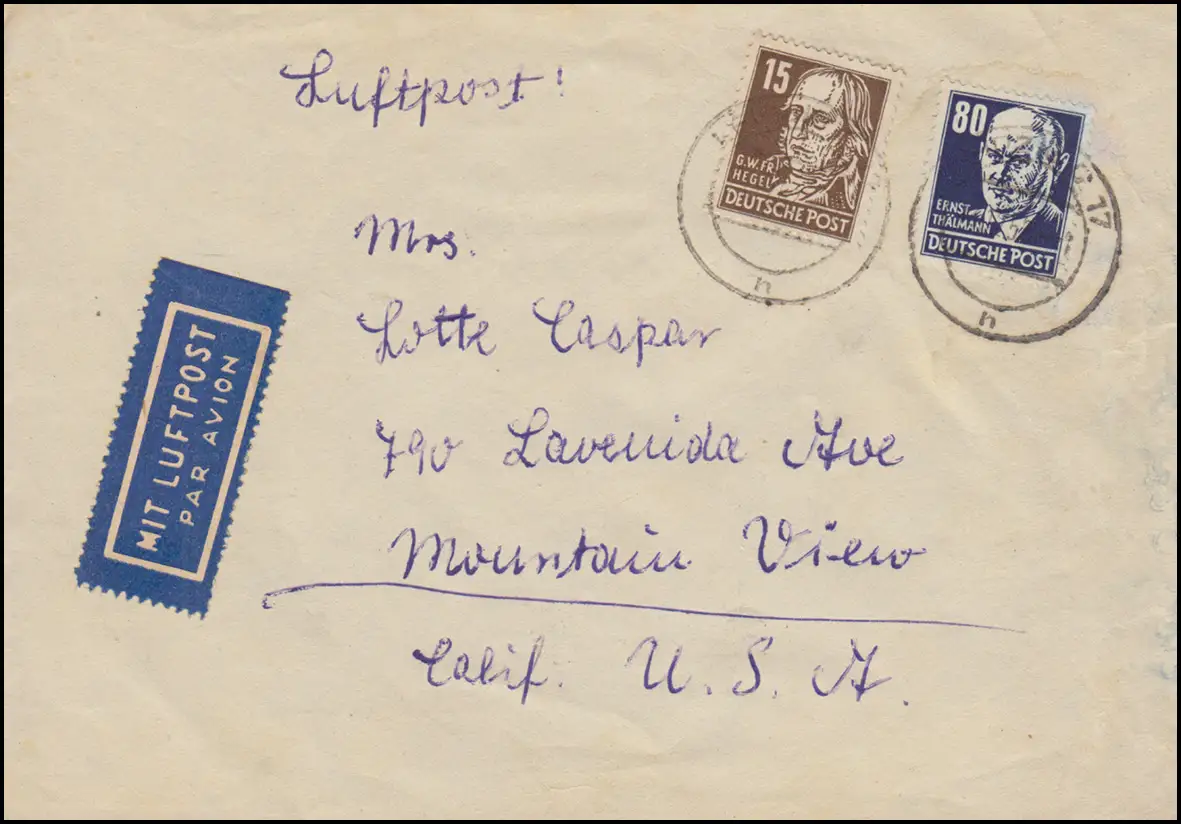 Luftpost!
15
G.W.FR.
HEGEL
DEUTSCHE POST
80
ERNST
THÄLMANN
DEUTSCHE POST
17
n
n
Mrs.
Lotte Caspar
790 Lavenida Ave
Mountain View
Calif. U. S. A.
MIT LUFTPOST
PAR AVION